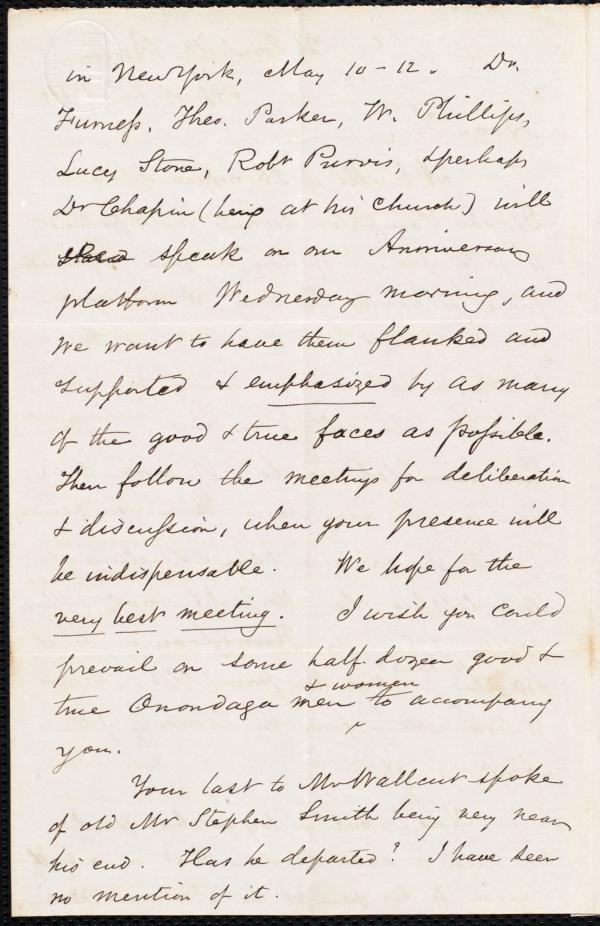 in New York, May 10-12. Dr.
Furness, Theo. Parker, W. Phillips,
Lucy Stone, Robt Purvis, & perhaps
Dr Chapin (being at his church) will
speak on our Anniversary
platform Wednesday morning, and
we want to have them flanked and
supported & emphasized by as many
of the good & true faces as possible.
Then follow the meetings for deliberation
& discussion, when your presence will
be indispensable. We hope for the
very best meeting. I wish you could
prevail on some half-dozen good &
& women
true Onondaga men to accompany
you.
Your last to Mr Wallcut spoke
of old Mr Stephen Smith being very near
his end. Has he departed? I have seen
no mention of it.